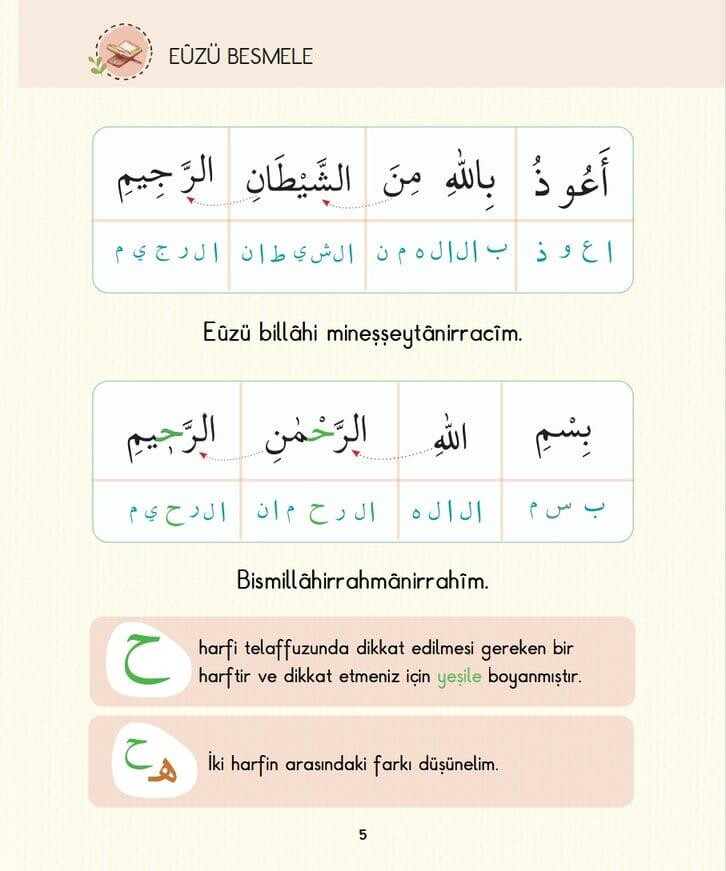 EÛZÜ BESMELE
أَعُوذُ بِاللّٰهِ مِنَ الشَّيْطَانِ الرَّجِيمِ
ا ع و ذ ب ا ل ل ه م ن ا ل ش ي ط ا ن ا ل ر ج ي م
Eûzü billâhi mineşşeytânirracîm.
بِسْمِ اللّٰهِ الرَّحْمٰنِ الرَّحِيمِ
ب س م ا ل ل ه ا ل ر ح م ا ن ا ل ر ح ي م
Bismillâhirrahmânirrahîm.
ح
harfi telaffuzunda dikkat edilmesi gereken bir
harftir ve dikkat etmeniz için yeşile boyanmıştır.
ح هـ
İki harfin arasındaki farkı düşünelim.
5